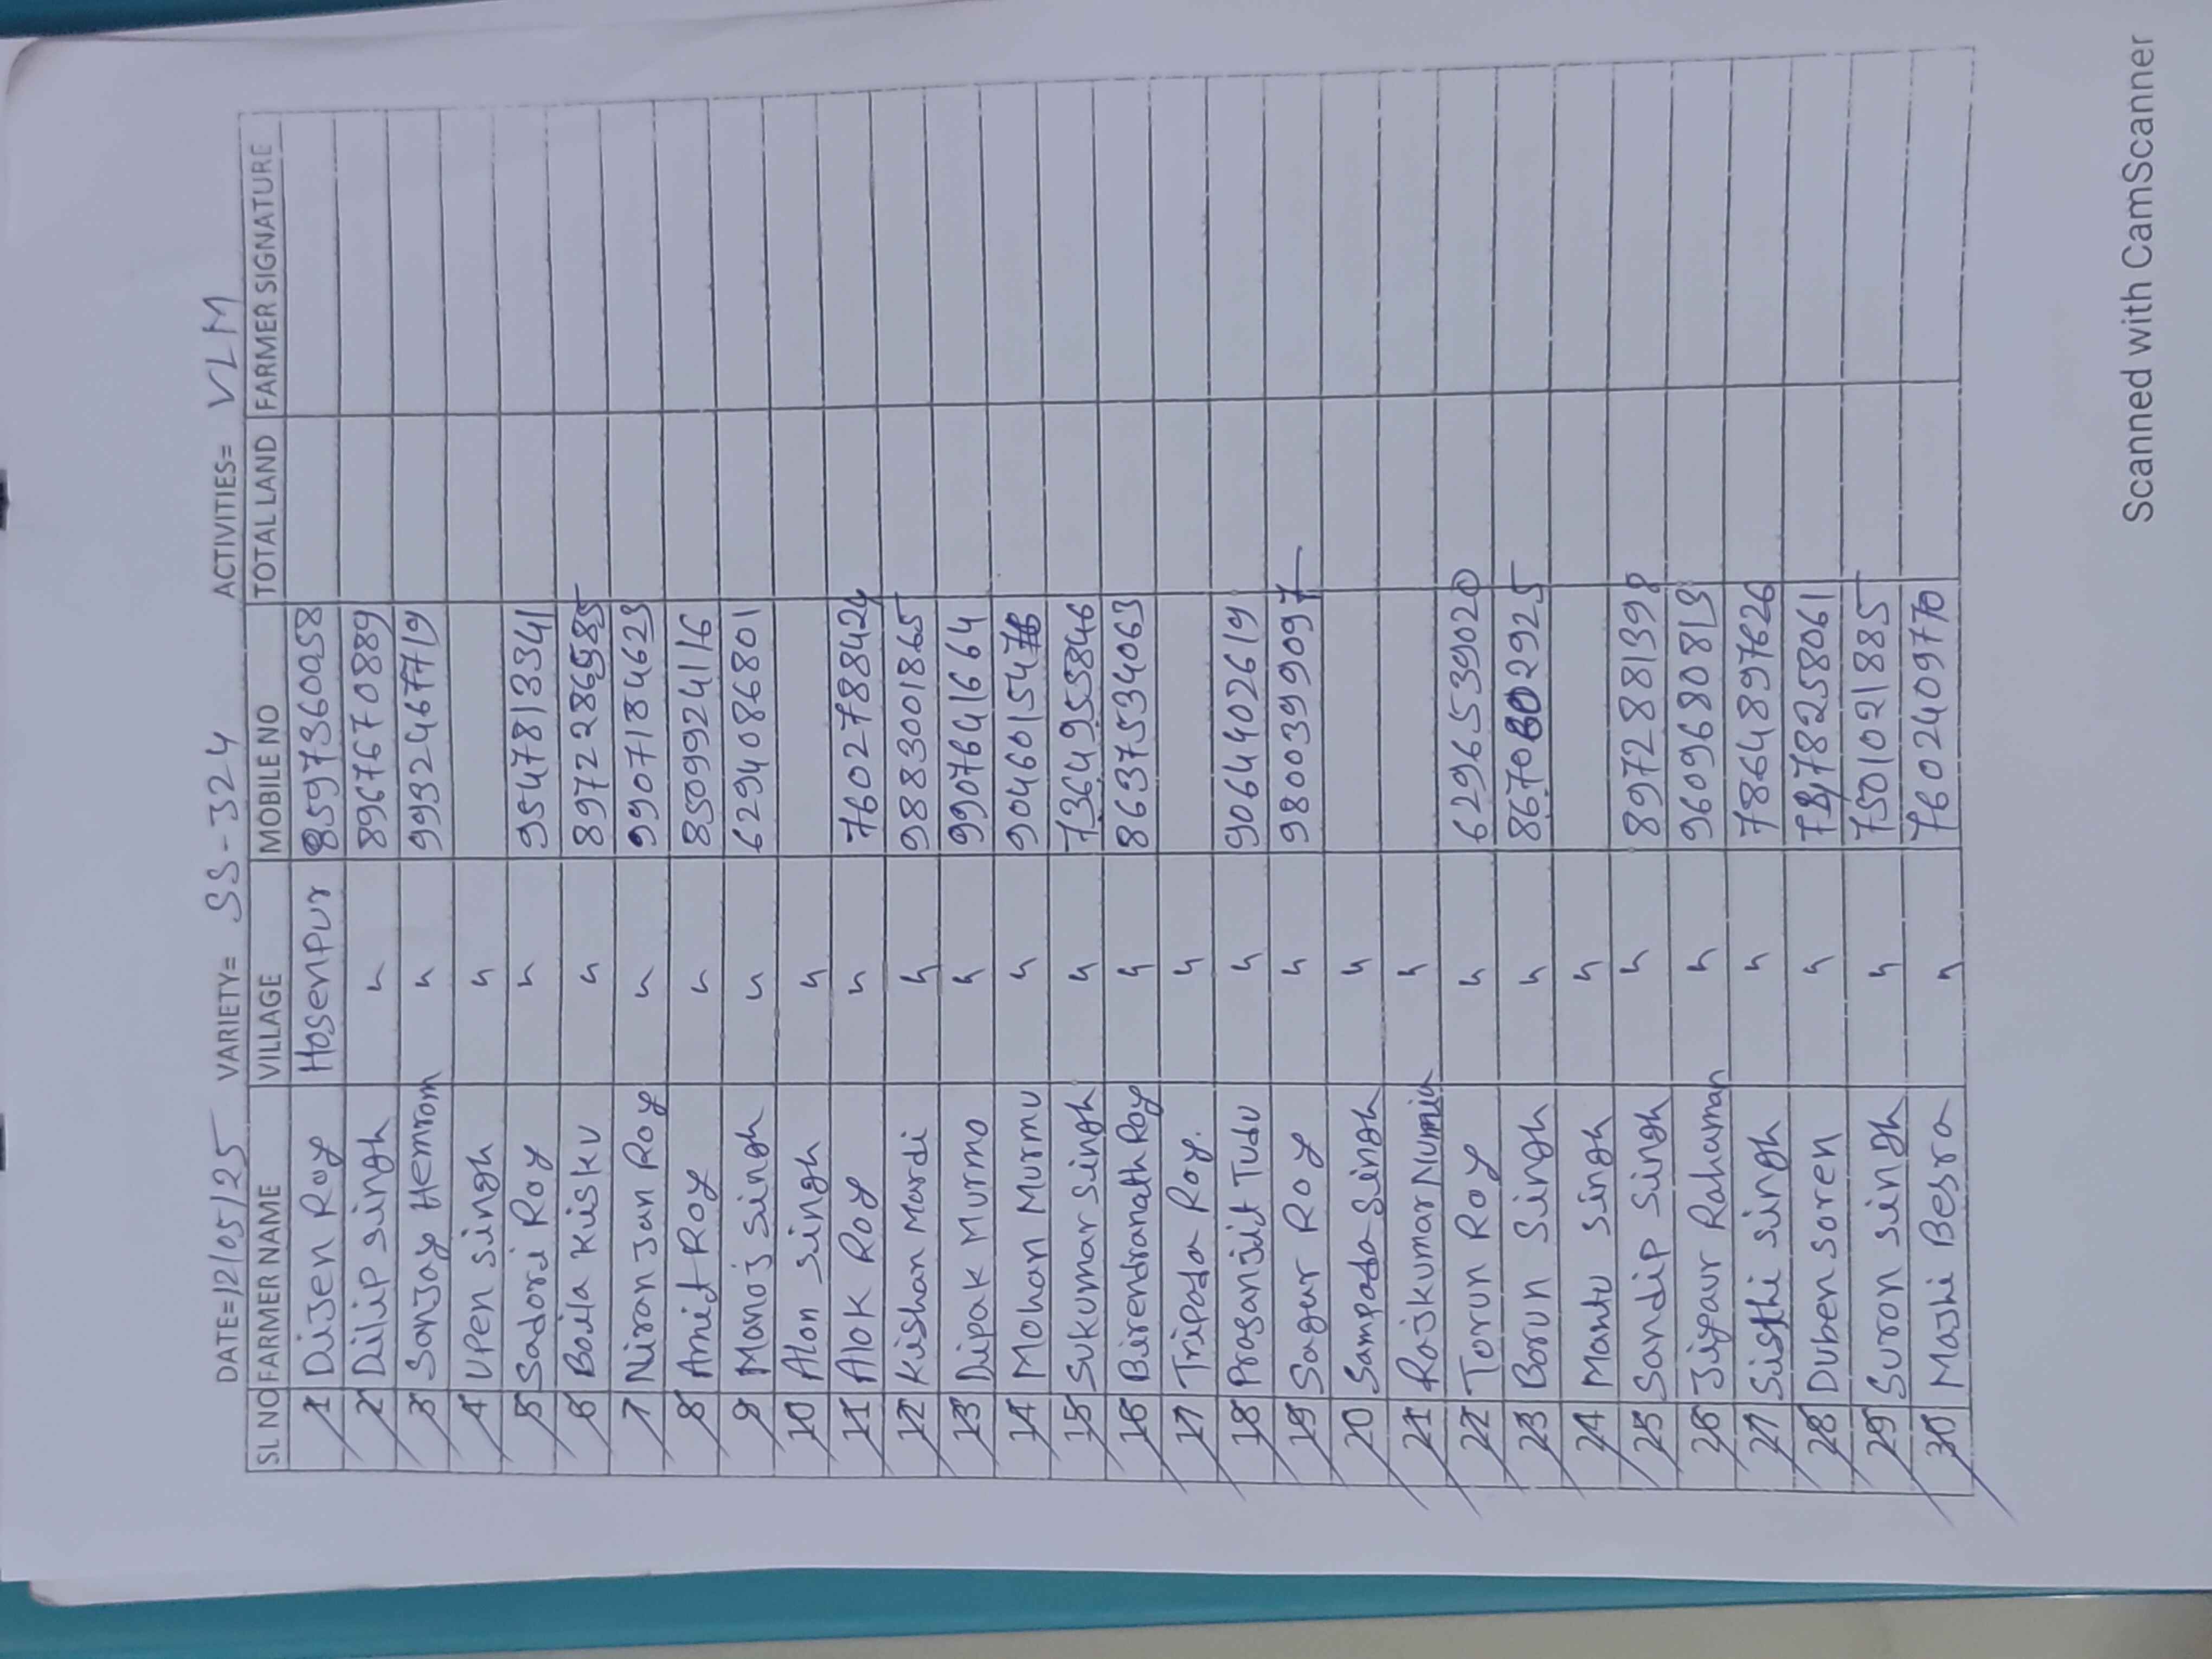 DATE=12/05/25 VARIETY= SS-324 ACTIVITIES= VLM
SL NO FARMER NAME VILLAGE MOBILE NO TOTAL LAND FARMER SIGNATURE
1 Dijen Roy Hosenpur 8597360058
2 Dilip singh " 8967670889
3 Sanjay Hemrom " 9932467719
4 Upen singh "
5 Sadori Roy " 9547813341
6 Boila Kisku " 8972286585
7 Niranjan Roy " 9907184623
8 Amit Roy " 8509924116
9 Manoj singh " 6294086801
10 Alon singh "
11 Alok Roy " 7602788424
12 Kishan Mardi " 9883001865
13 Dipak Murmo " 9907641664
14 Mohan Murmu " 9046015476
15 Sukumar singh " 7364955846
16 Birendranath Roy " 8637534063
17 Tripoda Roy. "
18 Prosanjit Tudu " 9064402619
19 Sagur Roy " 9800399097
20 Sampoda singh "
21 Rojkumar "
22 Torun Roy " 6296539020
23 Borun Singh " 8670802925
24 Mantu singh "
25 Sandip Singh " 8972881398
26 Jiyaur Rahaman " 9609680813
27 Sisthi singh " 7864897626
28 Duben soren " 7878258061
29 Suron singh " 7501021885
30 Mashi Besra " 7602409770
Scanned with CamScanner